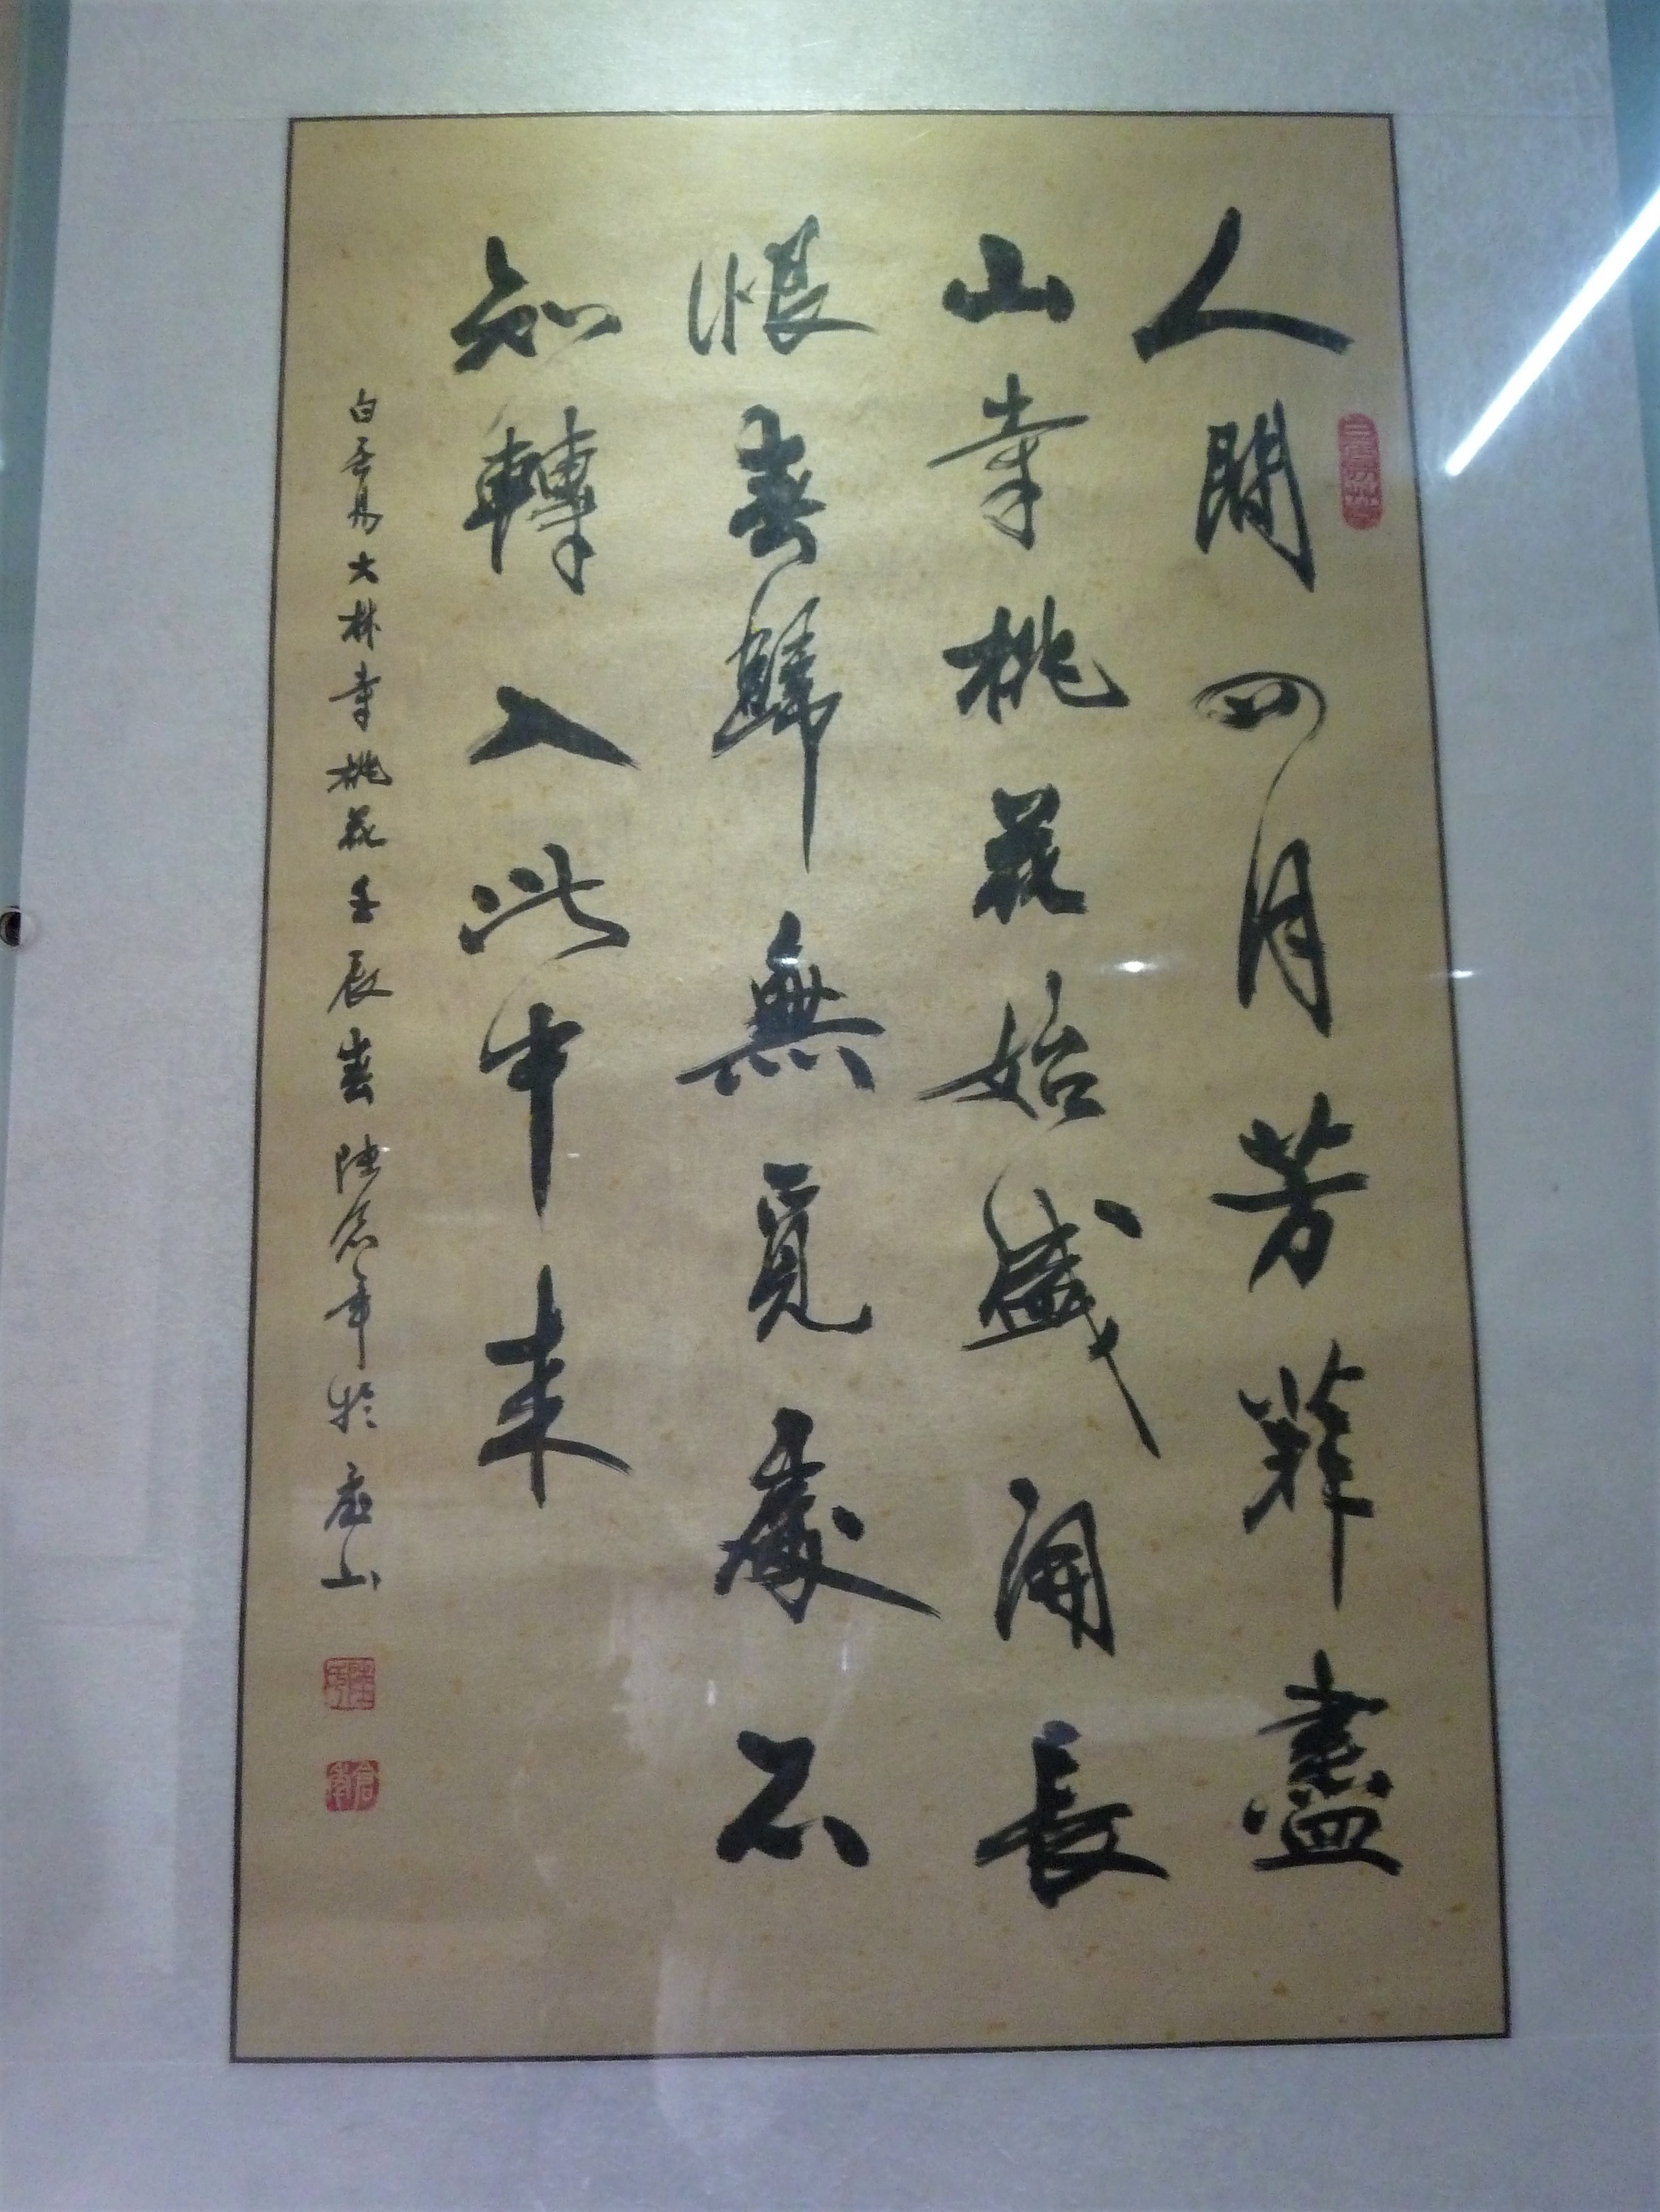 人間四月芳菲盡
山寺桃花始盛開長
恨春歸無覓處不
知轉入此中来
白居易大林寺桃花壬辰春陸念年於廬山